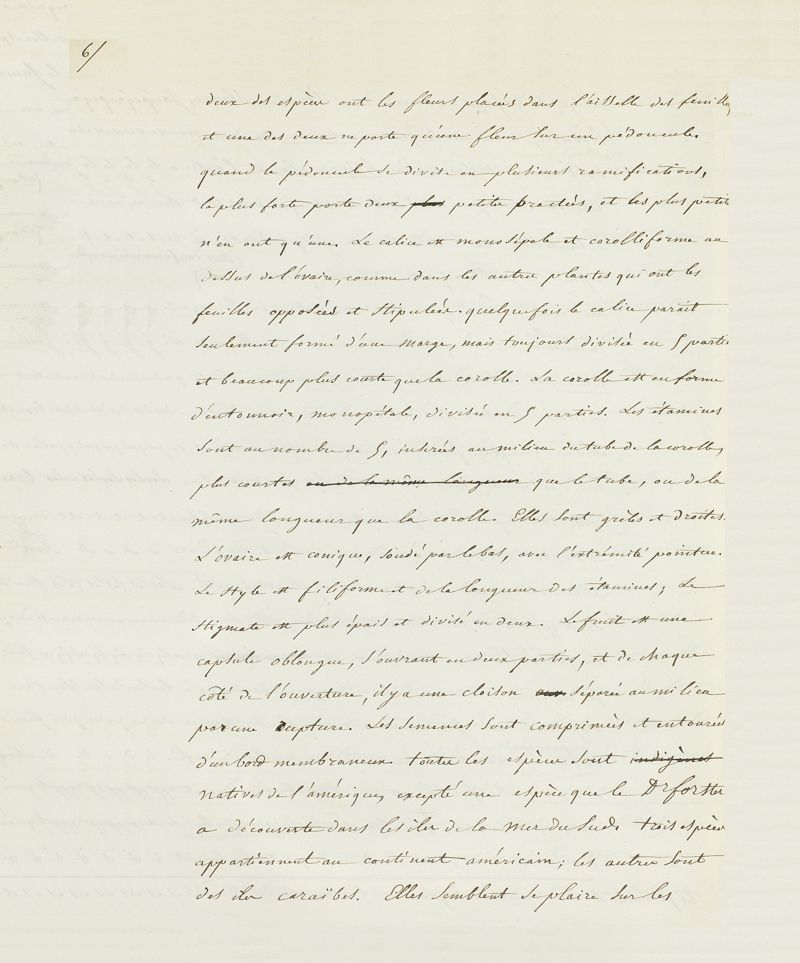 6/
deux des espèces ont les fleurs placées dans l'aisselle des feuilles
et une des deux ne porte qu'une fleur sur un pédoncule.
quand le pédoncule se divise en plusieurs ramifications,
la plus forte porte deux plus petite practées, et les plus petites
n'en ont qu'une. Le calice est monosépale et corolliforme au
dessus de l'ovaire, comme dans les autres plantes qui ont les
feuilles opposées et stipulées. quelquefois le calice paraît
seulement formé d'une marge, mais toujours divisée en 5 parties
et beaucoup plus courte que la corolle. La corolle est en forme
d'entonnoir, monopétale, divisée en 5 parties. Les étamines
sont au nombre de 5, insérées au milieu du tube de la corolle,
plus courtes ou de la même longueur que le tube, ou de la
même longueur que la corolle. Elles sont grèles et droites.
L'ovaire est conique, soudé par le bas, avec l'extrémité pointue.
Le style est filiforme et de la longueur des étamines; Le
stigmate est plus épais et divisé en deux. Le fruit est une
capsule oblongue, s'ouvrant en deux parties, et de chaque
côté de l'ouverture, il y a une cloison séparée au milieu
par une rupture. Les semences sont comprimées et entourées
d'un bord membraneux toutes les espèces sont indigènes
natives de l'amérique, excepté une espèce que le Dr forster
a découverte dans les iles de la mer du Sud. trois espèces
appartiennent au continent américain; les autres sont
des iles caraïbes. Elles semblent se plaire sur les